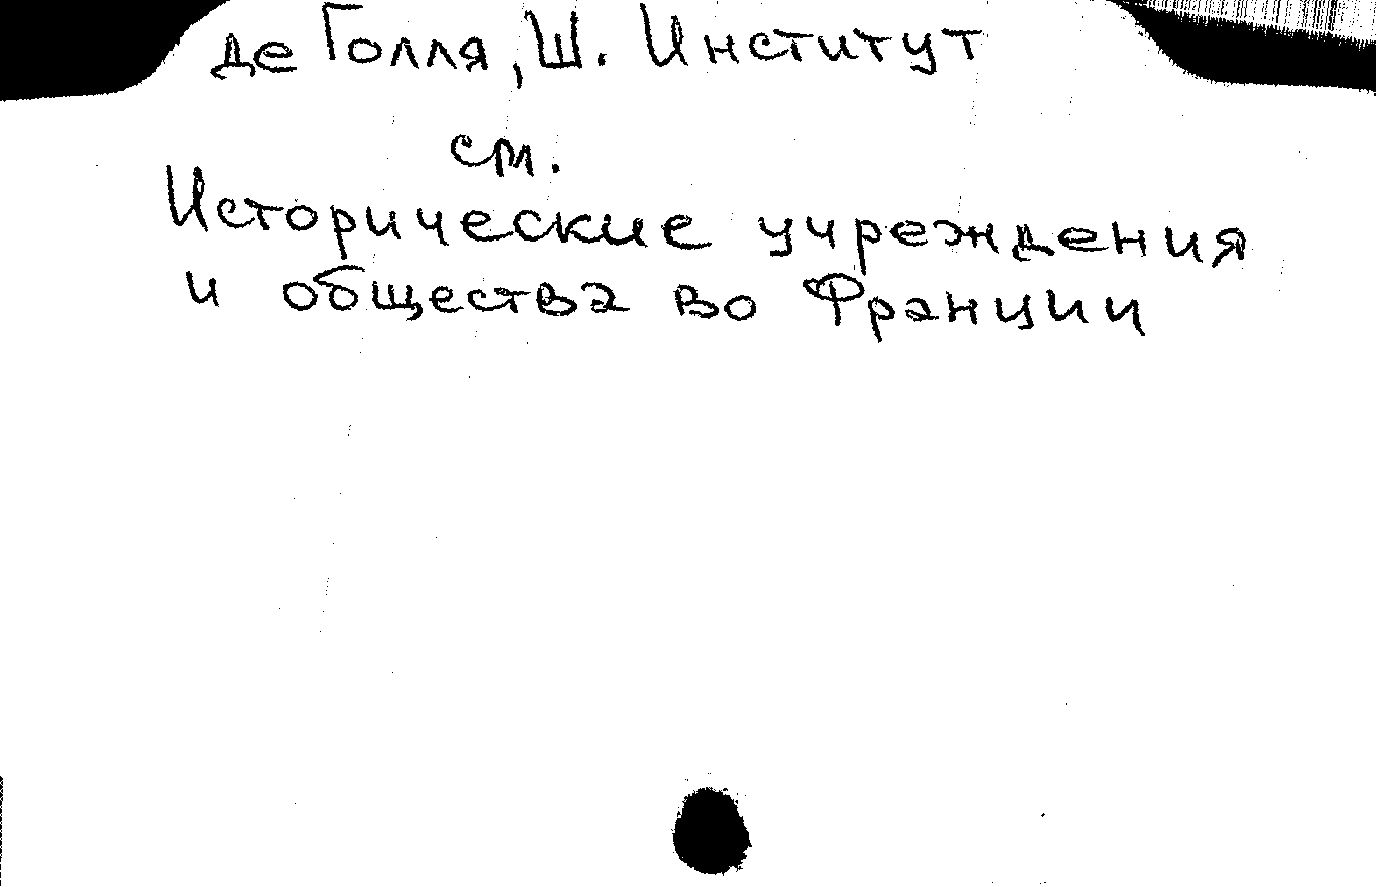 де Голля, Ш. Институт
см.
Исторические учреждения
и общества во Франции